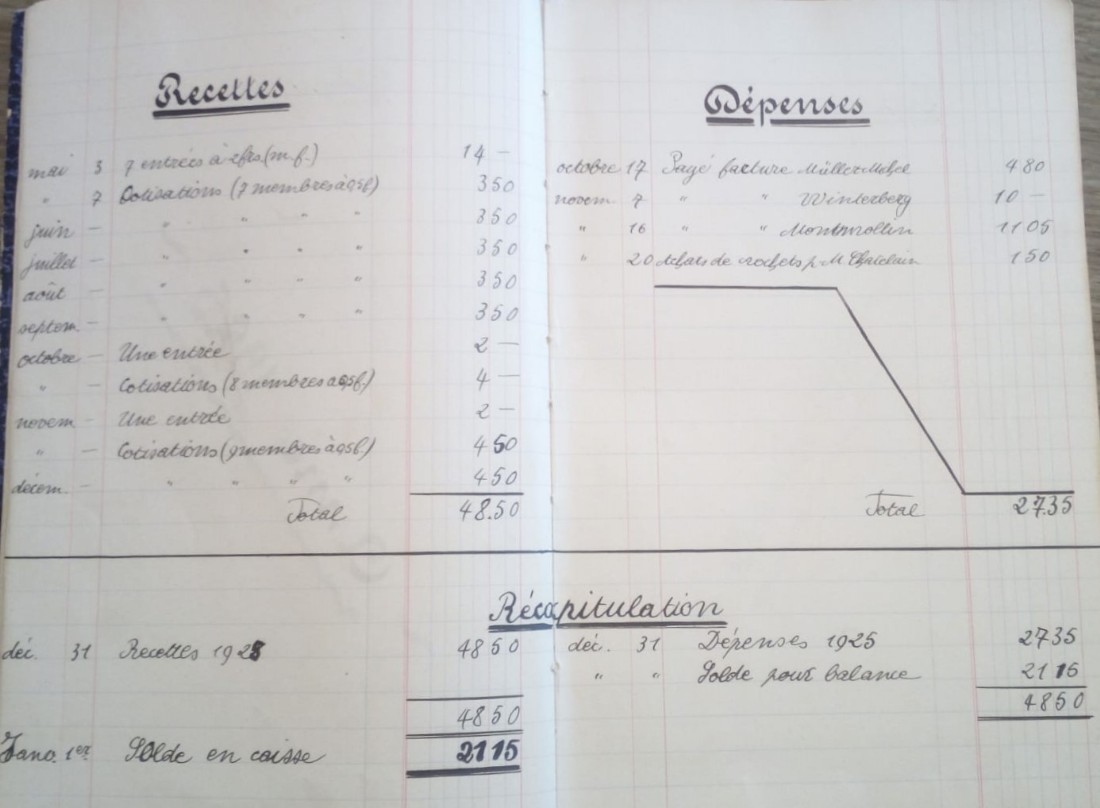 Recettes
mai 3 7 entrées à 2frs (m.f.) 14 —
" 7 Cotisations (7 membres à 0,5f.) 3 50
juin — " " " " 3 50
juillet — " " " " 3 50
août — " " " " 3 50
septem. — " " " " 3 50
octobre — Une entrée 2 —
" — Cotisations (8 membres à 0,5f.) 4 —
novem — Une entrée 2 —
" — Cotisations (9 membres à 0,5f.) 4 50
décem. — " " " " 4 50
Total 48.50
Dépenses
octobre 17 Payé facture Müller 4 80
novem 7 " " Winterberg 10 —
" 16 " " Montmollin 11 05
" 20 Achats de crochets p. M. Chatelain 1 50
Total 27.35
Récapitulation
déc. 31 Recettes 1925 48 50
48 50
Janv. 1er Solde en caisse 21 15
déc. 31 Dépenses 1925 27 35
" " Solde pour balance 21 15
48 50